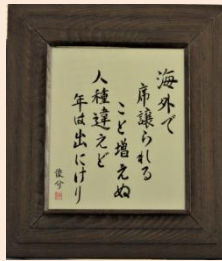 海外で
席譲られる
こと増えぬ
人種違えど
年は出にけり